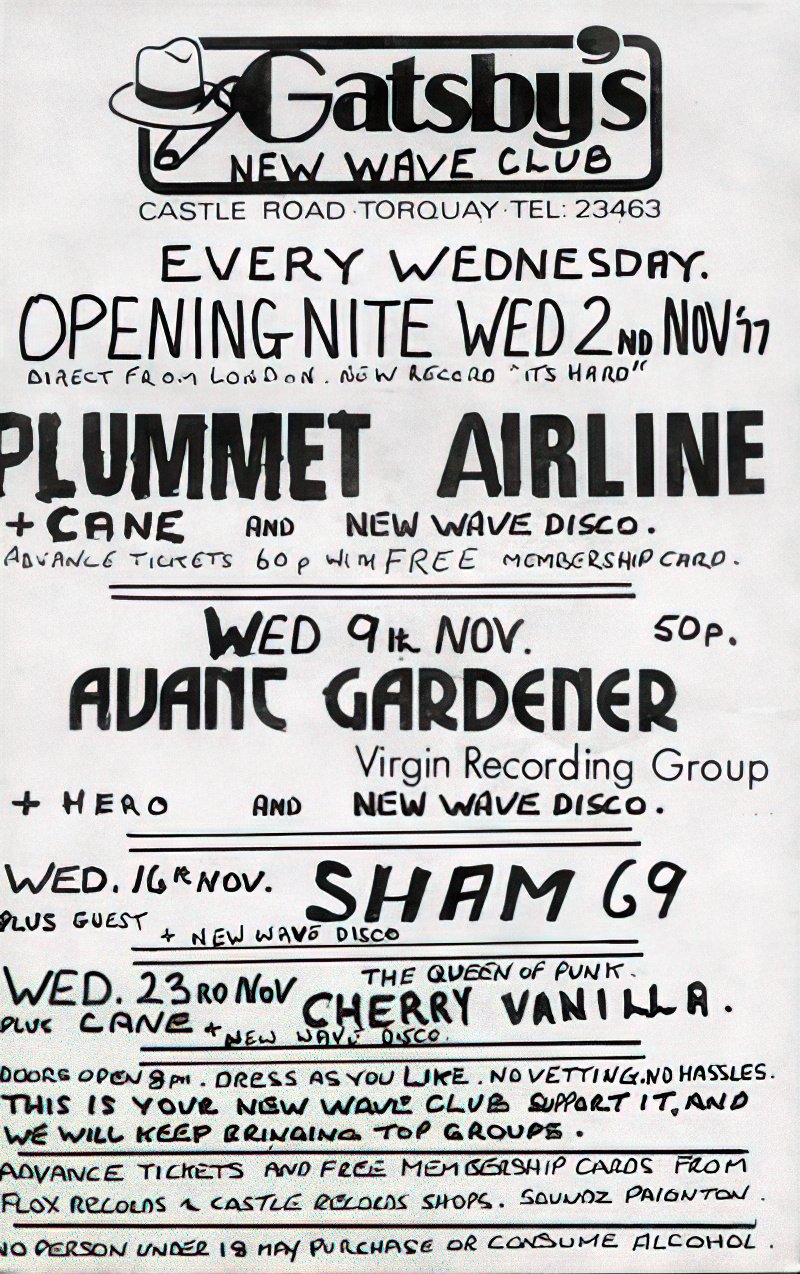 Gatsby's
NEW WAVE CLUB
CASTLE ROAD · TORQUAY · TEL: 23463
EVERY WEDNESDAY.
OPENING NITE WED 2ND NOV '77
DIRECT FROM LONDON. NEW RECORD "ITS HARD"
PLUMMET AIRLINE
+ CANE AND NEW WAVE DISCO.
ADVANCE TICKETS 60p WITH FREE MEMBERSHIP CARD.
WED 9th NOV. 50P.
AVANT GARDENER
Virgin Recording Group
+ HERO AND NEW WAVE DISCO.
WED. 16th NOV. SHAM 69
PLUS GUEST + NEW WAVE DISCO
WED. 23RD NOV THE QUEEN OF PUNK.
CHERRY VANILLA.
PLUS CANE + NEW WAVE DISCO.
DOORS OPEN 8pm. DRESS AS YOU LIKE. NO VETTING. NO HASSLES.
THIS IS YOUR NEW WAVE CLUB SUPPORT IT, AND
WE WILL KEEP BRINGING TOP GROUPS.
ADVANCE TICKETS AND FREE MEMBERSHIP CARDS FROM
FLOX RECORDS & CASTLE RECORDS SHOPS. SOUNDZ PAIGNTON.
NO PERSON UNDER 18 MAY PURCHASE OR CONSUME ALCOHOL.